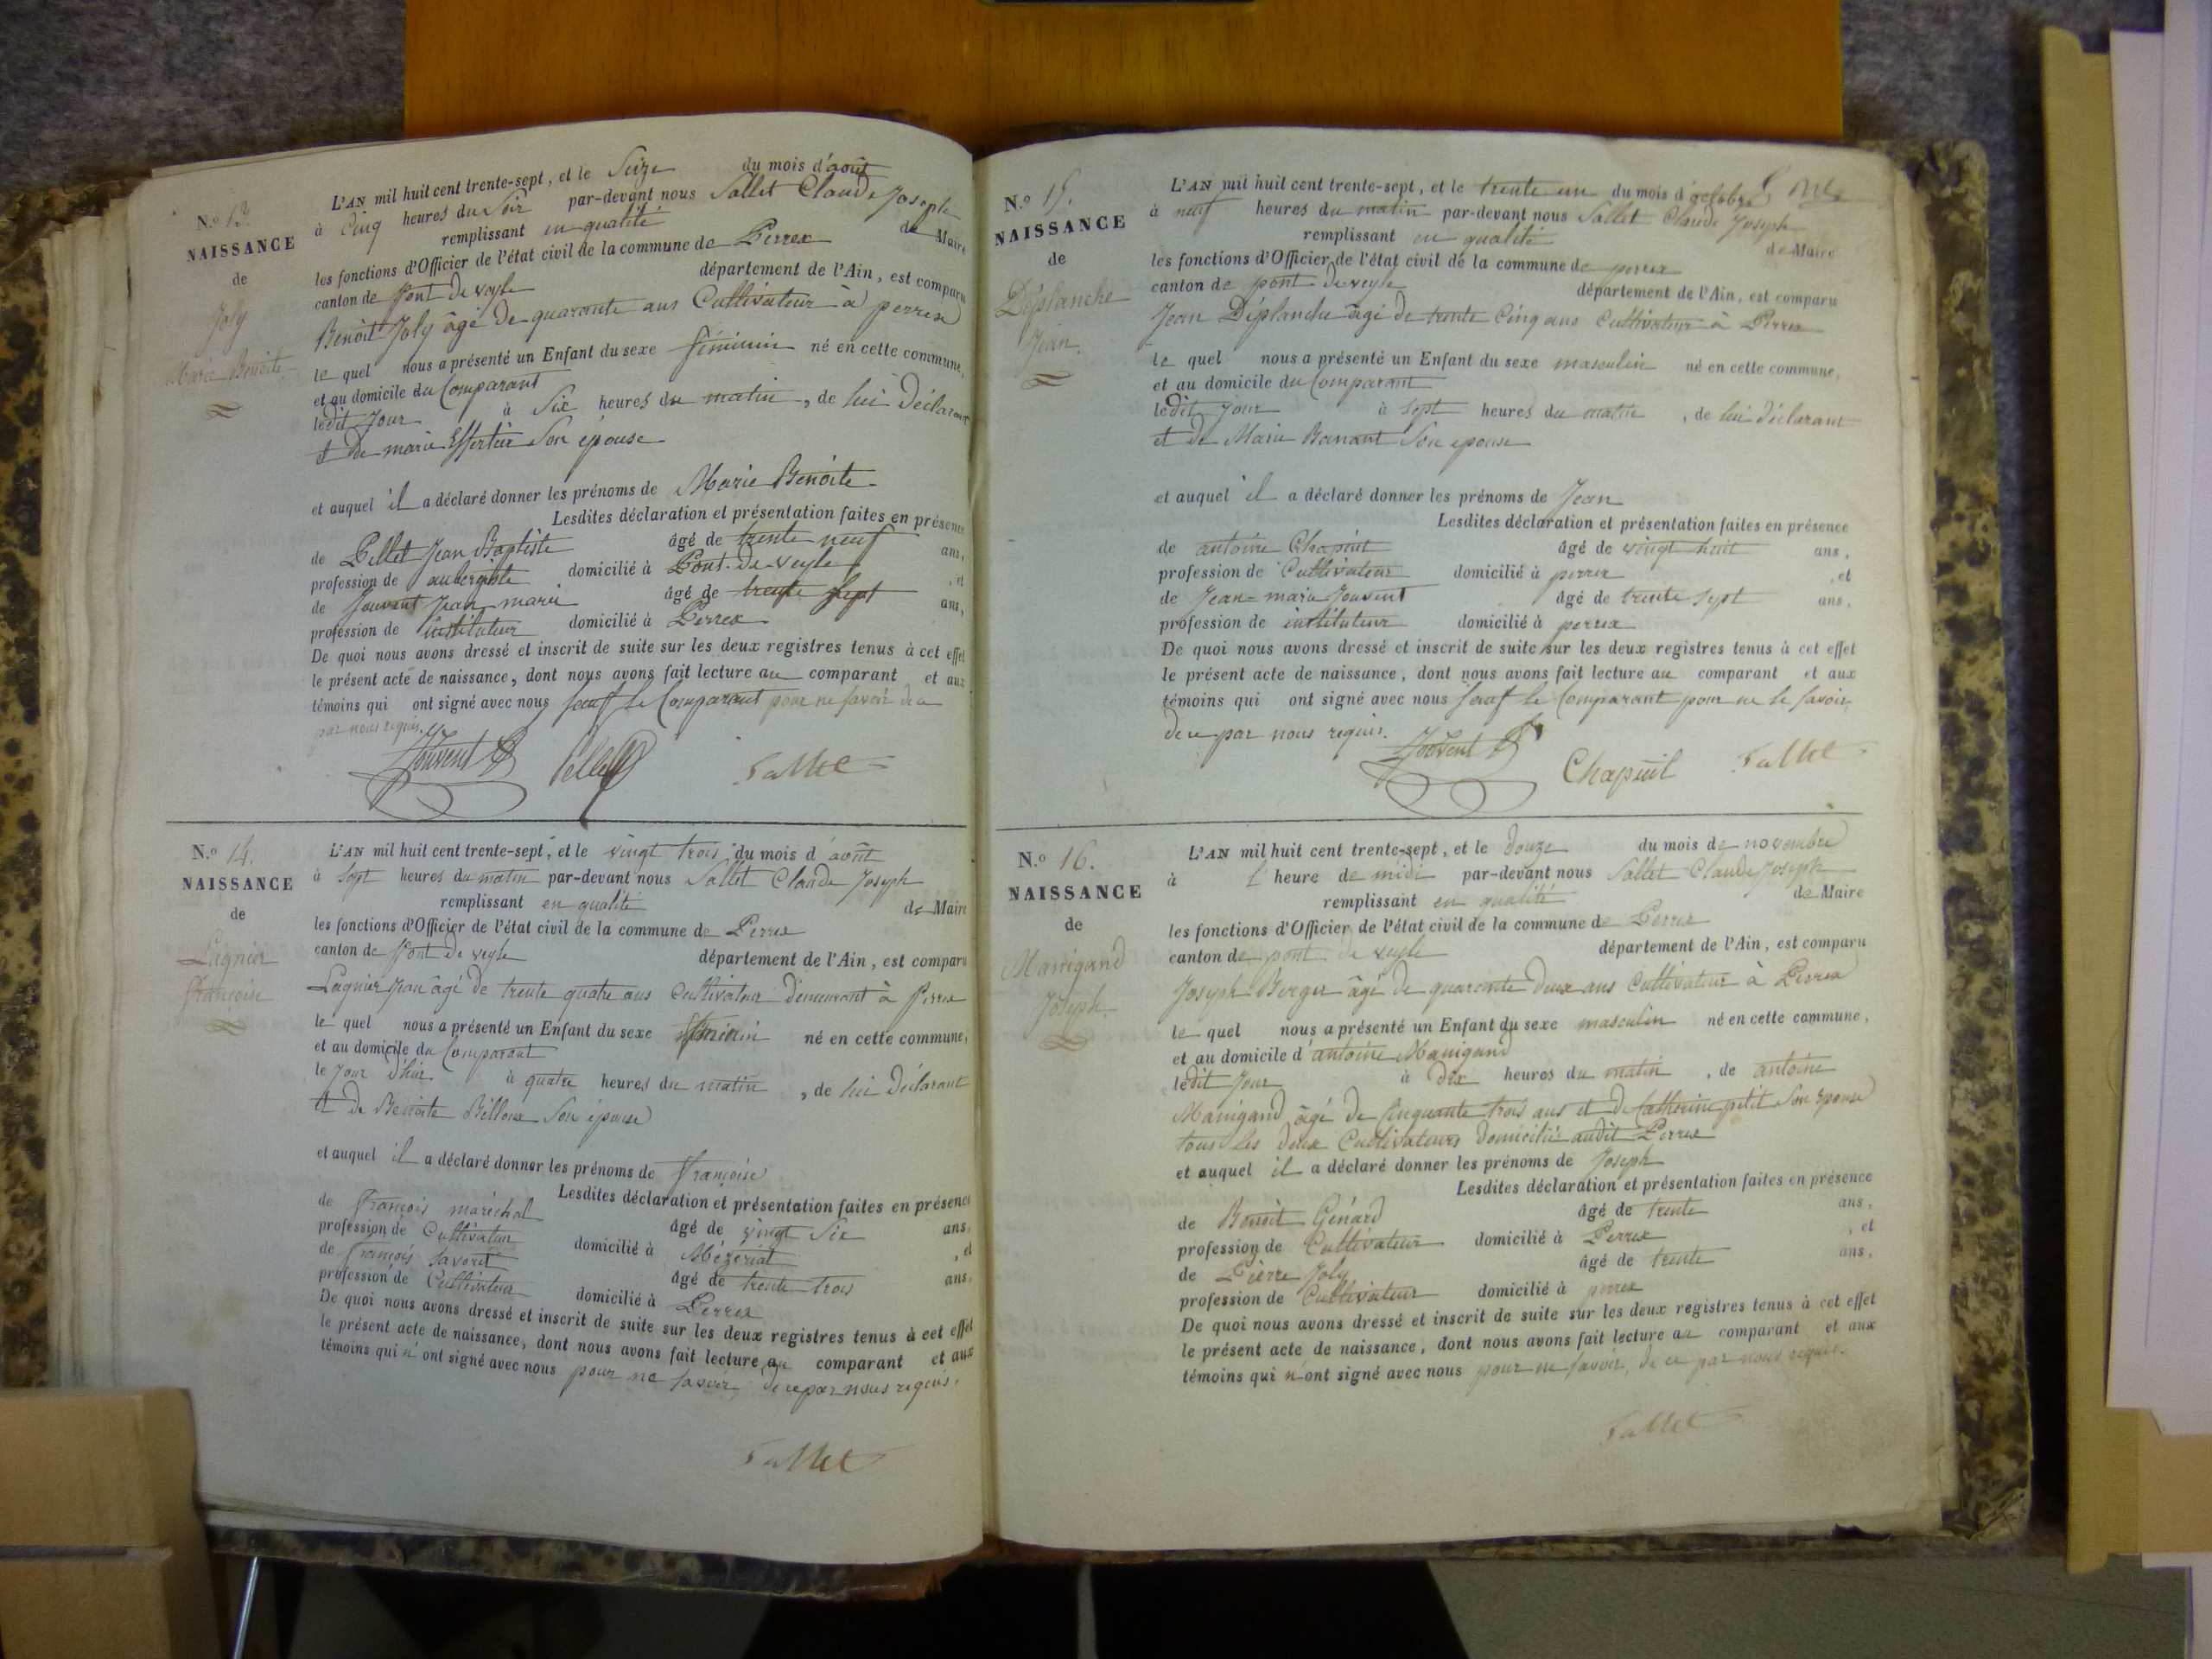 N.° 13.
NAISSANCE
de
Joly
Marie Benoite
L'AN mil huit cent trente-sept, et le Seize du mois d'août
à Cinq heures du Soir par-devant nous Sallet Claude Joseph
remplissant en qualité de Maire
les fonctions d'Officier de l'état civil de la commune de Perrex
canton de Pont de veyle département de l'Ain, est comparu
Benoit Joly âgé de quarante ans Cultivateur à perrex
le quel nous a présenté un Enfant du sexe féminin né en cette commune,
et au domicile du Comparant
ledit Jour à Six heures du matin, de lui Déclarant
et de marie Son épouse
et auquel il a déclaré donner les prénoms de Marie Benoite
Lesdites déclaration et présentation faites en présence
de Pellet Jean Baptiste âgé de trente neuf ans,
profession de aubergiste domicilié à Pont-de-veyle, et
de Jouvent Jean marie âgé de trente Sept ans,
profession de instituteur domicilié à Perrex
De quoi nous avons dressé et inscrit de suite sur les deux registres tenus à cet effet
le présent acte de naissance, dont nous avons fait lecture au comparant et aux
témoins qui ont signé avec nous sauf le Comparant pour ne savoir de ce
par nous requis.
Jouvent Pellet Sallet
N.° 14.
NAISSANCE
de
Lagnier
françoise
L'AN mil huit cent trente-sept, et le vingt trois du mois d'août
à Sept heures du matin par-devant nous Sallet Claude Joseph
remplissant en qualité de Maire
les fonctions d'Officier de l'état civil de la commune de Perrex
canton de Pont de veyle département de l'Ain, est comparu
Lagnier Jean âgé de trente quatre ans Cultivateur demeurant à Perrex
le quel nous a présenté un Enfant du sexe féminin né en cette commune,
et au domicile du Comparant
le Jour d'hier à quatre heures du matin, de lui Déclarant
et de Benoite Billoux Son épouse
et auquel il a déclaré donner les prénoms de françoise
Lesdites déclaration et présentation faites en présence
de François maréchal âgé de vingt Six ans,
profession de Cultivateur domicilié à Mézériat, et
de François Savorit âgé de trente trois ans,
profession de Cultivateur domicilié à Perrex
De quoi nous avons dressé et inscrit de suite sur les deux registres tenus à cet effet
le présent acte de naissance, dont nous avons fait lecture au comparant et aux
témoins qui n'ont signé avec nous pour ne savoir, de ce par nous requis.
Sallet
N.° 15.
NAISSANCE
de
Déplanche
Jean.
L'AN mil huit cent trente-sept, et le trente un du mois d'octobre
à neuf heures du matin par-devant nous Sallet Claude Joseph
remplissant en qualité de Maire
les fonctions d'Officier de l'état civil de la commune de perrex
canton de pont de veyle département de l'Ain, est comparu
Jean Déplanche âgé de trente Cinq ans Cultivateur à Perrex
le quel nous a présenté un Enfant du sexe masculin né en cette commune,
et au domicile du Comparant
ledit Jour à sept heures du matin, de lui déclarant
et de Marie Banant Son épouse
et auquel il a déclaré donner les prénoms de Jean
Lesdites déclaration et présentation faites en présence
de antoine Chapuit âgé de vingt huit ans,
profession de Cultivateur domicilié à perrex, et
de Jean-marie Jouvent âgé de trente sept ans,
profession de instituteur domicilié à perrex
De quoi nous avons dressé et inscrit de suite sur les deux registres tenus à cet effet
le présent acte de naissance, dont nous avons fait lecture au comparant et aux
témoins qui ont signé avec nous sauf le Comparant pour ne le savoir,
de ce par nous requis.
Jouvent Chapuit Sallet
N.° 16.
NAISSANCE
de
Manigand
Joseph
L'AN mil huit cent trente-sept, et le Douze du mois de novembre
à l'heure de midi par-devant nous Sallet Claude Joseph
remplissant en qualité de Maire
les fonctions d'Officier de l'état civil de la commune de Perrex
canton de pont de veyle département de l'Ain, est comparu
Joseph Berger âgé de quarante deux ans Cultivateur à Perrex
le quel nous a présenté un Enfant du sexe masculin né en cette commune,
et au domicile d'antoine Manigand
ledit Jour à dix heures du matin, de antoine
Manigand âgé de Cinquante trois ans et de Catherine petit Son Epouse
tous les deux Cultivateurs domiciliés audit Perrex
et auquel il a déclaré donner les prénoms de Joseph
Lesdites déclaration et présentation faites en présence
de Benoit Genard âgé de trente ans,
profession de Cultivateur domicilié à Perrex, et
de Pierre Joly âgé de trente ans,
profession de Cultivateur domicilié à perrex
De quoi nous avons dressé et inscrit de suite sur les deux registres tenus à cet effet
le présent acte de naissance, dont nous avons fait lecture au comparant et aux
témoins qui n'ont signé avec nous pour ne savoir, de ce par nous requis.
Sallet